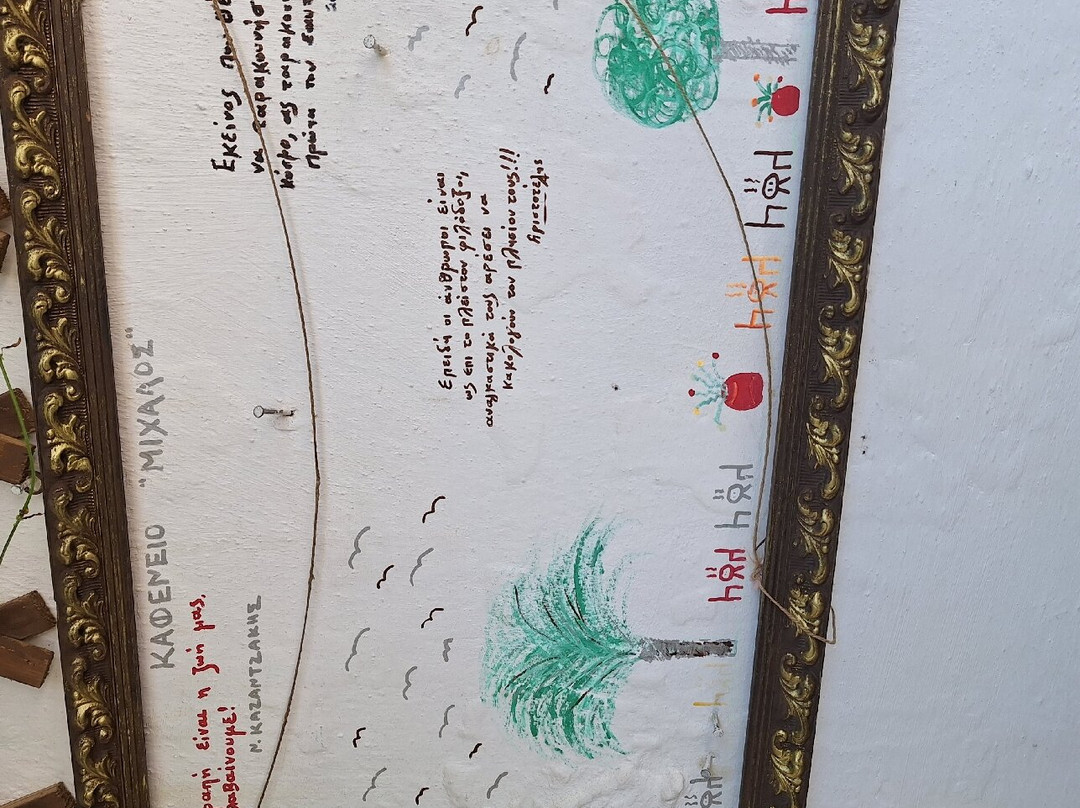 ΚΑΦΕΝΕΙΟ "ΜΙΧΑΛΟΣ"
ραπή είναι η ζωή μας,
λαβαίνουμε!
Ν. ΚΑΖΑΝΤΖΑΚΗΣ
Εκείνος που
να ταρακουνήσ
κόσμο, ας ταρακου
πρώτα τον εαυτ
Επειδή οι άνθρωποι είναι
ως επι το πλείστον φιλόδοξοι,
αναγκαστικά τους αρέσει να
κακολογούν τον πλησίον τους!!!
Αριστοτέλος